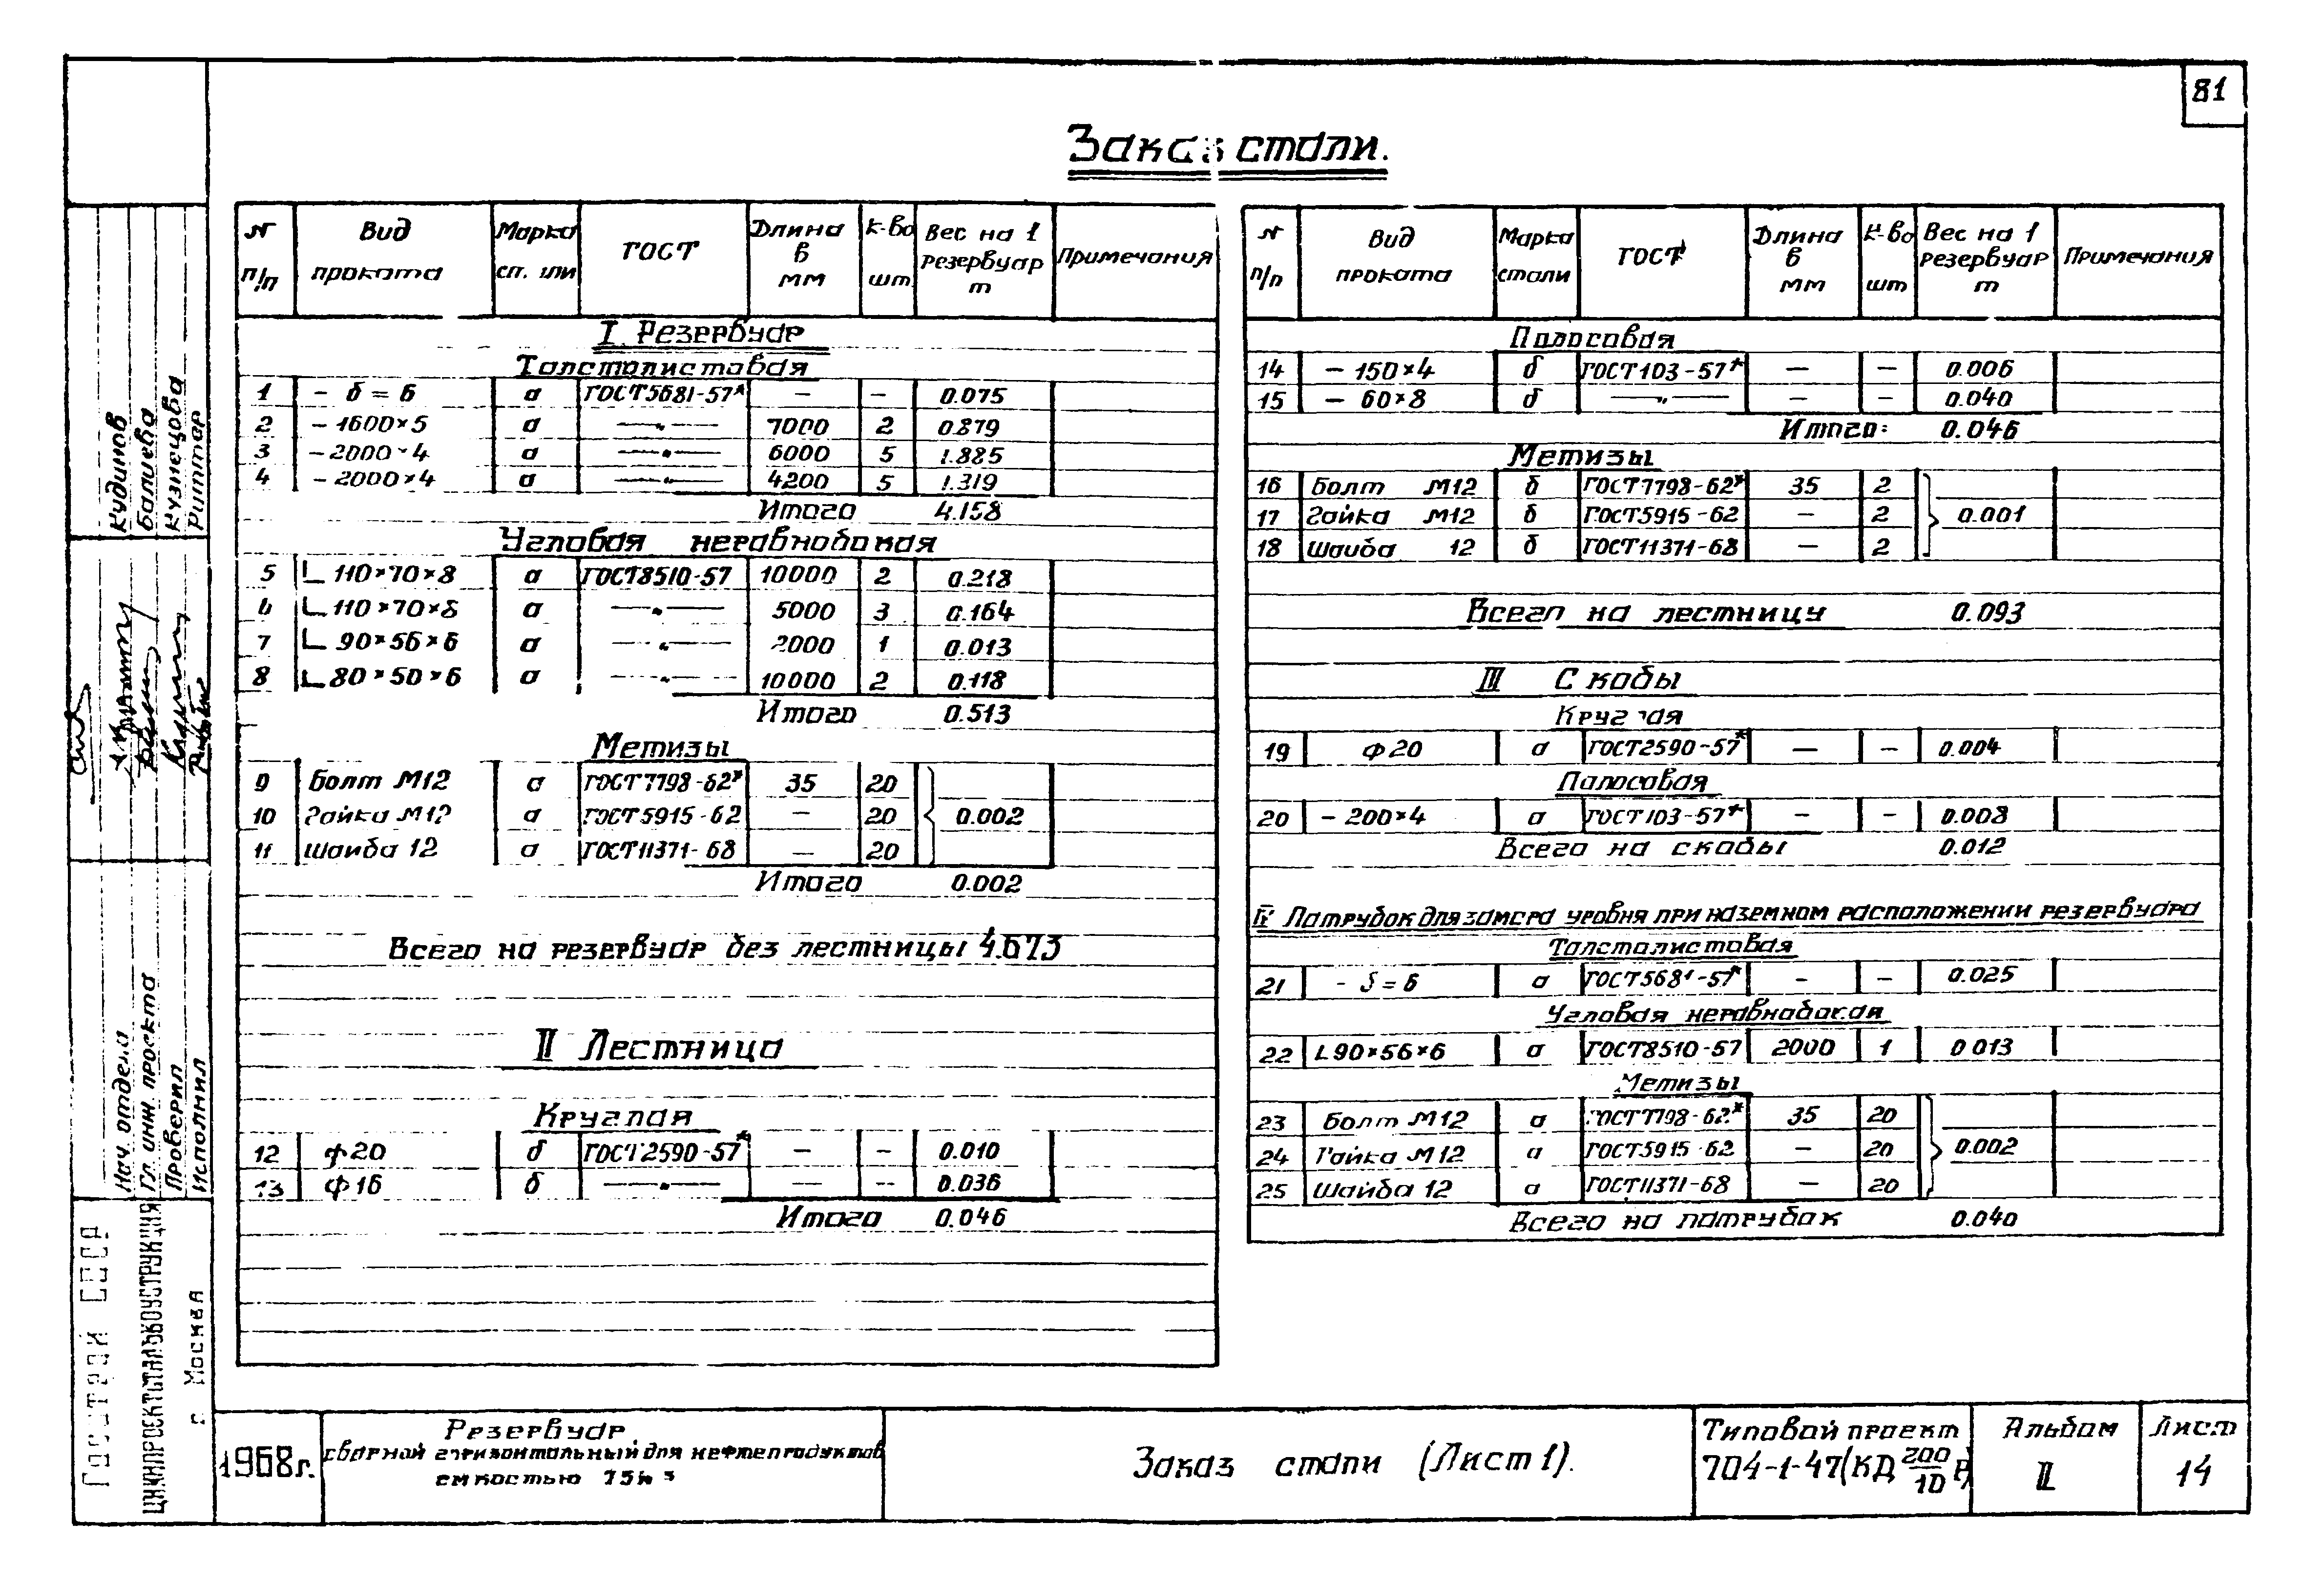 81
Заказ стали.
N п/п | Вид проката | Марка стали | ГОСТ | Длина в мм | К-во шт. | Вес на 1 резервуар т | Примечания
I. Резервуар
Толстолистовая
1 | - δ = 6 | а | ГОСТ5681-57* | — | — | 0.075
2 | - 1600×5 | а | —„— | 7000 | 2 | 0.879
3 | - 2000×4 | а | —„— | 6000 | 5 | 1.885
4 | - 2000×4 | а | —„— | 4200 | 5 | 1.319
Итого 4.158
Угловая неравнобокая
5 | ∟110×70×8 | а | ГОСТ8510-57 | 10000 | 2 | 0.218
6 | ∟110×70×8 | а | —„— | 5000 | 3 | 0.164
7 | ∟90×56×6 | а | —„— | 2000 | 1 | 0.013
8 | ∟80×50×6 | а | —„— | 10000 | 2 | 0.118
Итого 0.513
Метизы
9 | Болт М12 | а | ГОСТ7798-62* | 35 | 20
10 | Гайка М12 | а | ГОСТ5915-62 | — | 20 | 0.002
11 | Шайба 12 | а | ГОСТ11371-68 | — | 20
Итого 0.002
Всего на резервуар без лестницы 4.673
II Лестница
Круглая
12 | ф20 | б | ГОСТ2590-57* | — | — | 0.010
13 | ф16 | б | —„— | — | — | 0.036
Итого 0.046
N п/п | Вид проката | Марка стали | ГОСТ | Длина в мм | К-во шт | Вес на 1 резервуар т | Примечания
Полосовая
14 | - 150×4 | б | ГОСТ103-57* | — | — | 0.006
15 | - 60×8 | б | —„— | — | — | 0.040
Итого: 0.046
Метизы
16 | Болт М12 | б | ГОСТ7798-62* | 35 | 2
17 | Гайка М12 | б | ГОСТ5915-62 | — | 2 | 0.001
18 | Шайба 12 | б | ГОСТ11371-68 | — | 2
Всего на лестницу 0.093
III Скобы
Круглая
19 | ф20 | а | ГОСТ2590-57* | — | — | 0.004
Полосовая
20 | - 200×4 | а | ГОСТ103-57* | — | — | 0.008
Всего на скобы 0.012
IV Патрубок для замера уровня при наземном расположении резервуара
Толстолистовая
21 | - δ = 6 | а | ГОСТ5681-57* | — | — | 0.025
Угловая неравнобокая
22 | ∟90×56×6 | а | ГОСТ8510-57 | 2000 | 1 | 0.013
Метизы
23 | Болт М12 | а | ГОСТ7798-62* | 35 | 20
24 | Гайка М12 | а | ГОСТ5915-62 | — | 20 | 0.002
25 | Шайба 12 | а | ГОСТ11371-68 | — | 20
Всего на патрубок 0.040
Кудинов
Балиева
Кузнецова
Риттер
Нач. отдела
Гл. инж. проекта
Проверил
Исполнил
Госстрой СССР
ЦНИИПРОЕКТСТАЛЬКОНСТРУКЦИЯ
г. Москва
1968г.
Резервуар
сварной горизонтальный для нефтепродуктов
емкостью 75м³
Заказ стали (Лист 1).
Типовой проект
704-1-47(КД 200/10 Р)
Альбом
II
Лист
14